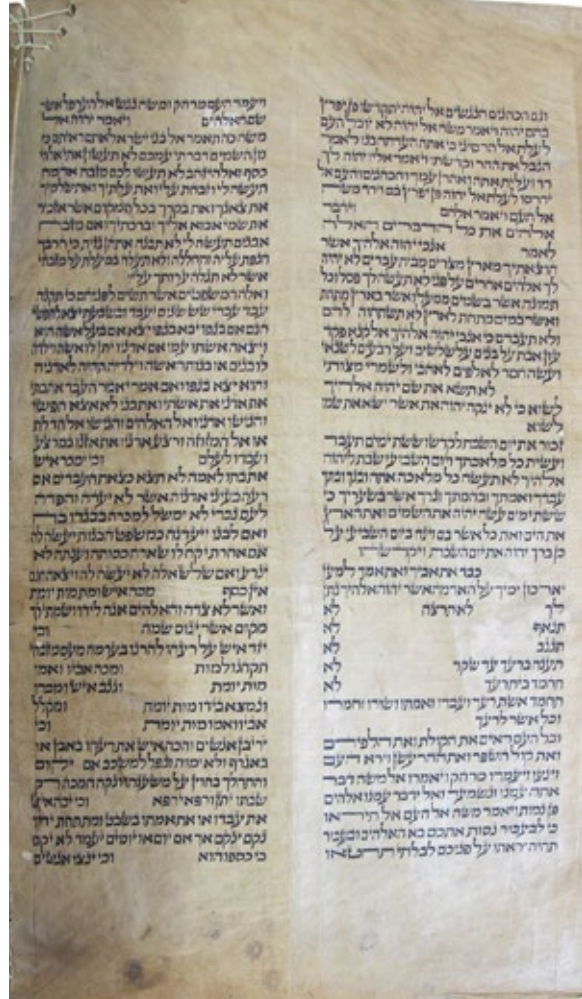 וגם הכהנים הנגשים אל יהוה יתקדשו פן יפרץ
בהם יהוה ויאמר משה אל יהוה לא יוכל העם
לעלת אל הר סיני כי אתה העדתה בנו לאמר
הגבל את ההר וקדשתו ויאמר אליו יהוה לך
רד ועלית אתה ואהרן עמך והכהנים והעם אל
יהרסו לעלת אל יהוה פן יפרץ בם וירד משה
אל העם ויאמר אלהם וידבר
אלהים את כל הדברים האלה
לאמר אנכי יהוה אלהיך אשר
הוצאתיך מארץ מצרים מבית עבדים לא יהיה
לך אלהים אחרים על פני לא תעשה לך פסל וכל
תמונה אשר בשמים ממעל ואשר בארץ מתחת
ואשר במים מתחת לארץ לא תשתחוה להם
ולא תעבדם כי אנכי יהוה אלהיך אל קנא פקד
עון אבת על בנים על שלשים ועל רבעים לשנאי
ועשה חסד לאלפים לאהבי ולשמרי מצותי
לא תשא את שם יהוה אלהיך
לשוא כי לא ינקה יהוה את אשר ישא את שמו
לשוא
זכור את יום השבת לקדשו ששת ימים תעבד
ועשית כל מלאכתך ויום השביעי שבת ליהוה
אלהיך לא תעשה כל מלאכה אתה ובנך ובתך
עבדך ואמתך ובהמתך וגרך אשר בשעריך כי
ששת ימים עשה יהוה את השמים ואת הארץ
את הים ואת כל אשר בם וינח ביום השביעי על
כן ברך יהוה את יום השבת ויקדשהו
כבד את אביך ואת אמך למען
יארכון ימיך על האדמה אשר יהוה אלהיך נתן
לך לא תרצח לא
תנאף לא
תגנב לא
תענה ברעך עד שקר לא
תחמד בית רעך לא
תחמד אשת רעך ועבדו ואמתו ושורו וחמרו
וכל אשר לרעך
וכל העם ראים את הקולת ואת הלפידם
ואת קול השפר ואת ההר עשן וירא העם
וינעו ויעמדו מרחק ויאמרו אל משה דבר
אתה עמנו ונשמעה ואל ידבר עמנו אלהים
פן נמות ויאמר משה אל העם אל תיראו
כי לבעבור נסות אתכם בא האלהים ובעבור
תהיה יראתו על פניכם לבלתי תחטאו
ויעמד העם מרחק ומשה נגש אל הערפל אשר
שם האלהים ויאמר יהוה אל
משה כה תאמר אל בני ישראל אתם ראיתם כי
מן השמים דברתי עמכם לא תעשון אתי אלהי
כסף ואלהי זהב לא תעשו לכם מזבח אדמה
תעשה לי וזבחת עליו את עלתיך ואת שלמיך
את צאנך ואת בקרך בכל המקום אשר אזכיר
את שמי אבוא אליך וברכתיך ואם מזבח
אבנים תעשה לי לא תבנה אתהן גזית כי חרבך
הנפת עליה ותחללה ולא תעלה במעלת על מזבחי
אשר לא תגלה ערותך עליו
ואלה המשפטים אשר תשים לפניהם כי תקנה
עבד עברי שש שנים יעבד ובשבעת יצא לחפשי
חנם אם בגפו יבא בגפו יצא אם בעל אשה הוא
ויצאה אשתו עמו אם אדניו יתן לו אשה וילדה
לו בנים או בנות האשה וילדיה תהיה לאדניה
והוא יצא בגפו ואם אמר יאמר העבד אהבתי
את אדני את אשתי ואת בני לא אצא חפשי
והגישו אדניו אל האלהים והגישו אל הדלת
או אל המזוזה ורצע אדניו את אזנו במרצע
ועבדו לעלם וכי ימכר איש
את בתו לאמה לא תצא כצאת העבדים אם
רעה בעיני אדניה אשר לא יעדה והפדה
לעם נכרי לא ימשל למכרה בבגדו בה
ואם לבנו ייעדנה כמשפט הבנות יעשה לה
אם אחרת יקח לו שארה כסותה וענתה לא
יגרע ואם שלש אלה לא יעשה לה ויצאה חנם
אין כסף מכה איש ומת מות יומת
ואשר לא צדה והאלהים אנה לידו ושמתי לך
מקום אשר ינוס שמה וכי
יזד איש על רעהו להרגו בערמה מעם מזבחי
תקחנו למות ומכה אביו ואמו
מות יומת וגנב איש ומכרו
ונמצא בידו מות יומת ומקלל
אביו ואמו מות יומת וכי
יריבן אנשים והכה איש את רעהו באבן או
באגרף ולא ימות ונפל למשכב אם יקום
והתהלך בחוץ על משענתו ונקה המכה רק
שבתו יתן ורפא ירפא וכי יכה איש
את עבדו או את אמתו בשבט ומת תחת ידו
נקם ינקם אך אם יום או יומים יעמד לא יקם
כי כספו הוא וכי ינצו אנשים